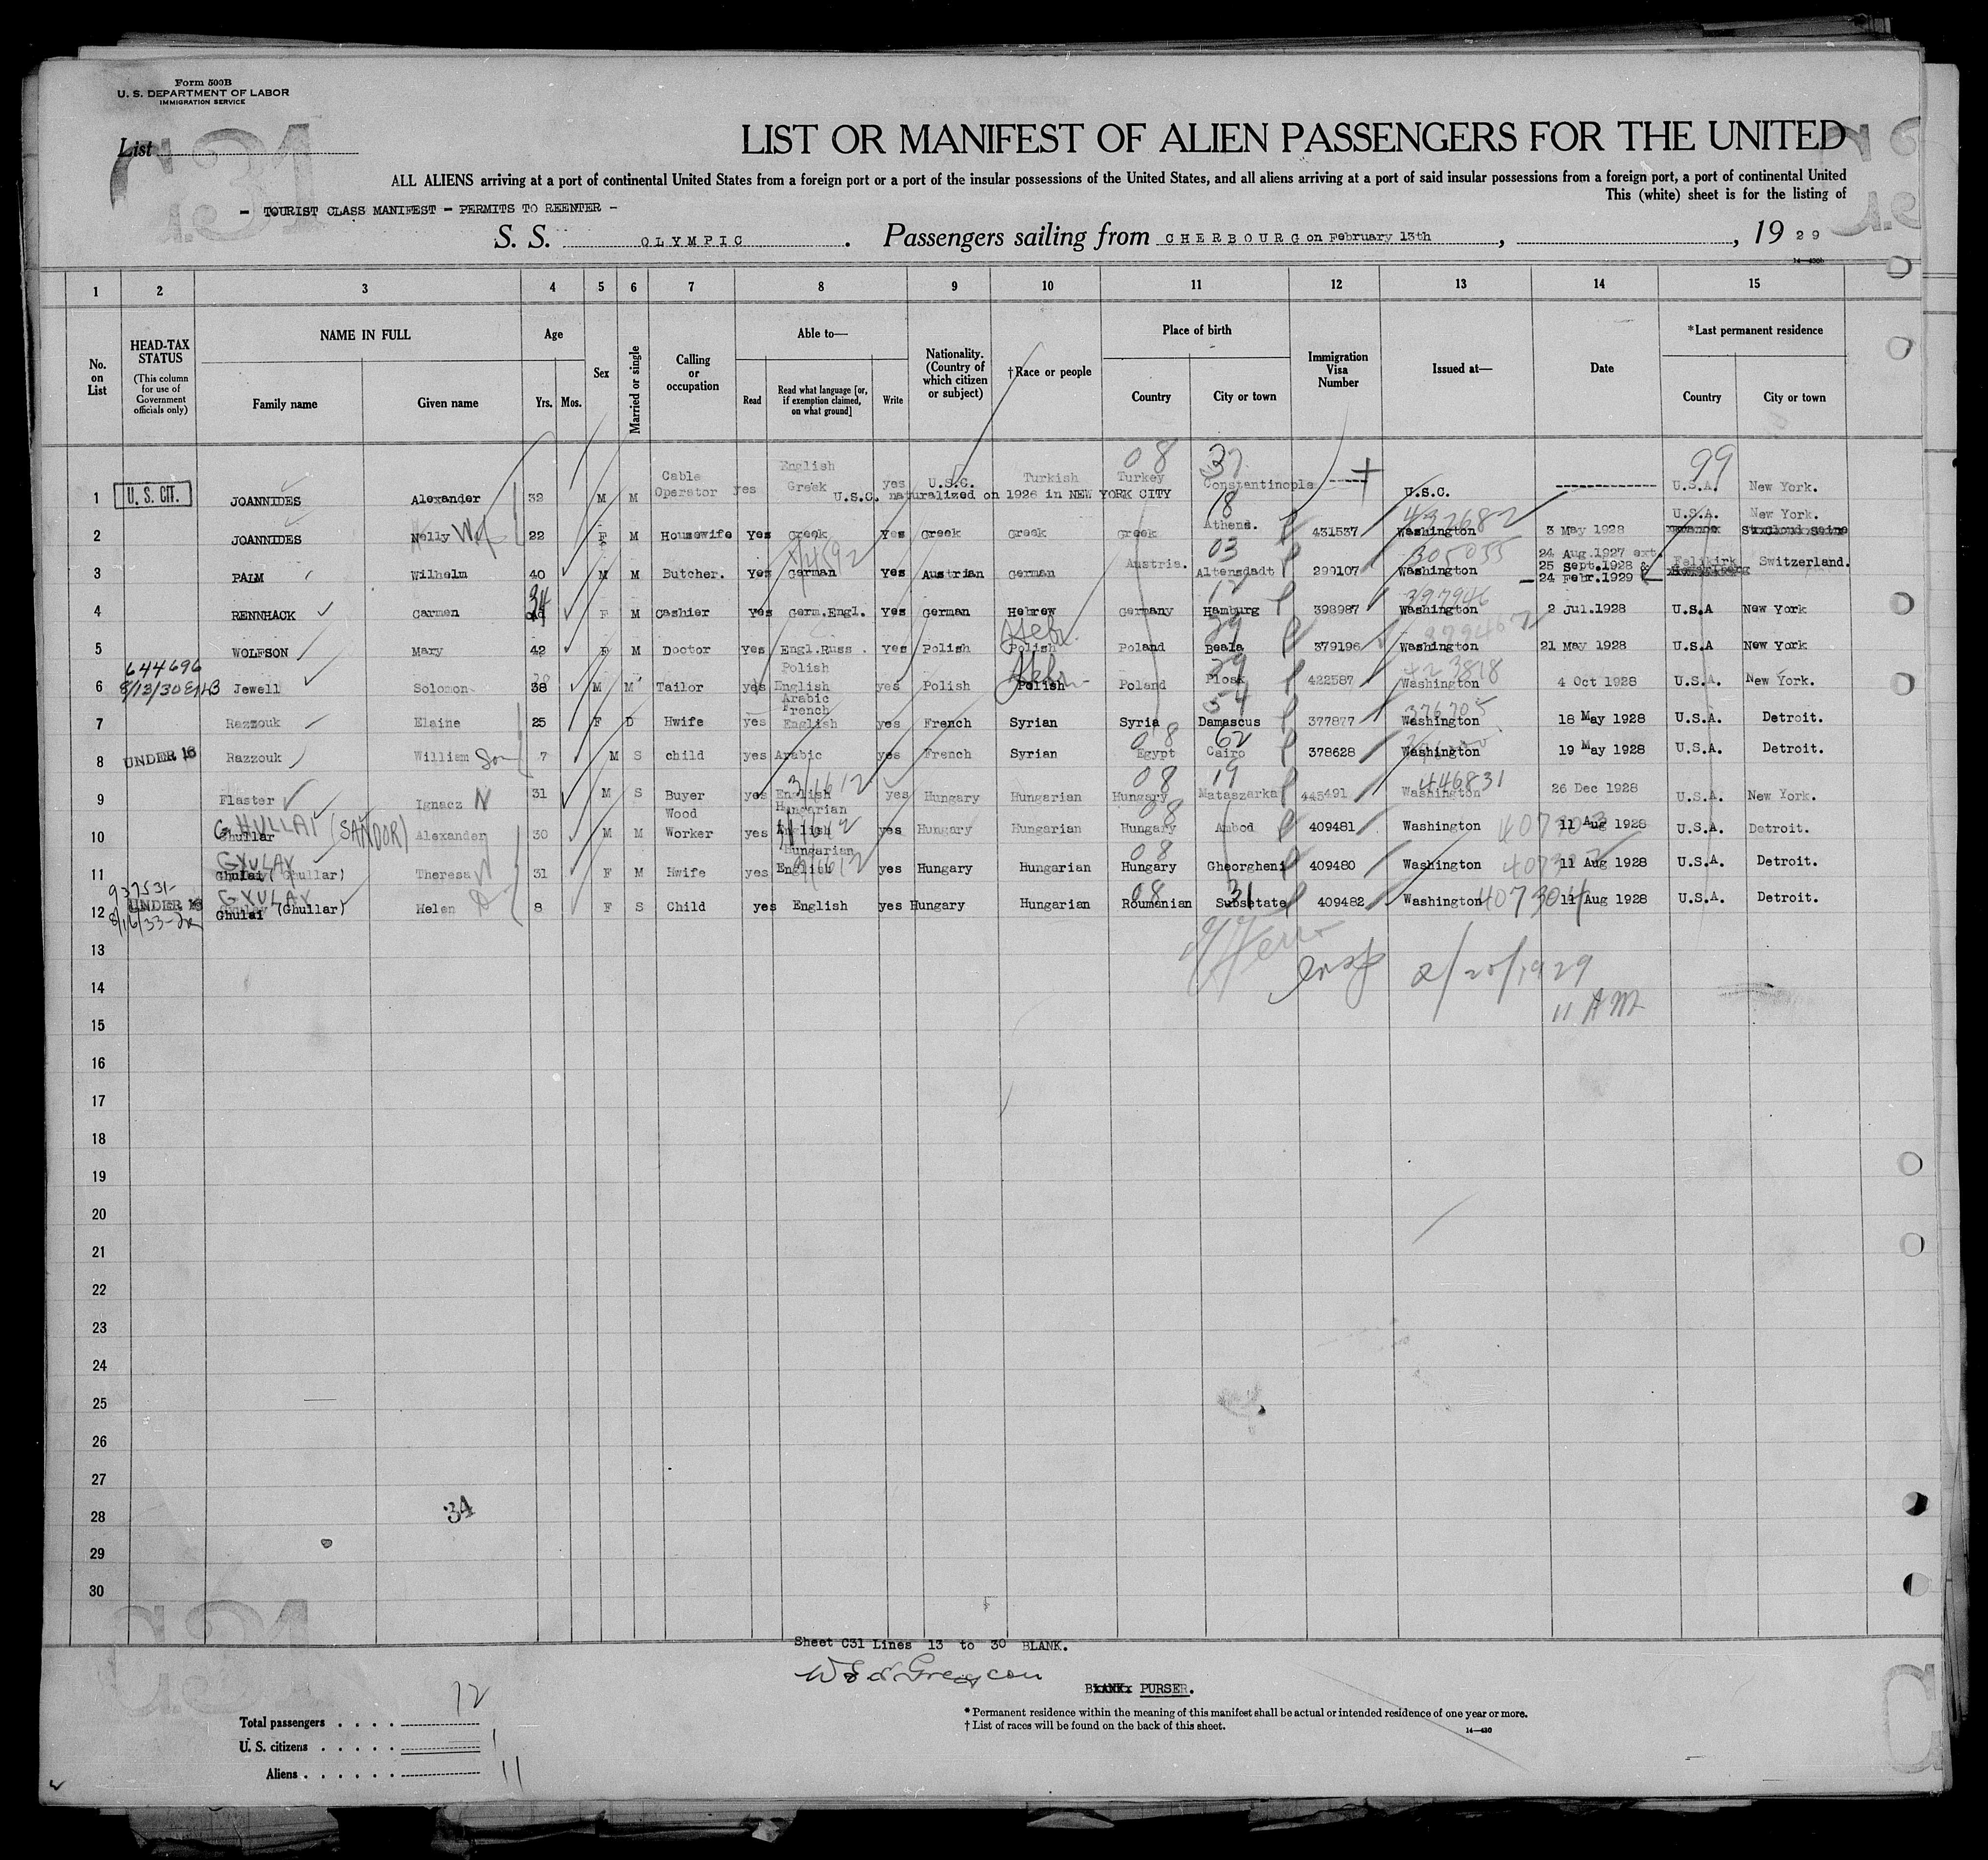 Form 500B
U. S. DEPARTMENT OF LABOR
IMMIGRATION SERVICE
List
LIST OR MANIFEST OF ALIEN PASSENGERS FOR THE UNITED
ALL ALIENS arriving at a port of continental United States from a foreign port or a port of the insular possessions of the United States, and all aliens arriving at a port of said insular possessions from a foreign port, a port of continental United
This (white) sheet is for the listing of
- TOURIST CLASS MANIFEST - PERMITS TO REENTER -
S. S. OLYMPIC . Passengers sailing from CHERBOURG on February 13th , , 19 29
14-430b
1 2 3 4 5 6 7 8 9 10 11 12 13 14 15
No. on List
HEAD-TAX STATUS
(This column for use of Government officials only)
NAME IN FULL
Family name Given name
Age
Yrs. Mos.
Sex
Married or single
Calling or occupation
Able to—
Read
Read what language [or, if exemption claimed, on what ground]
Write
Nationality. (Country of which citizen or subject)
†Race or people
Place of birth
Country City or town
Immigration Visa Number
Issued at—
Date
*Last permanent residence
Country City or town
08 37 99
1 U. S. CIT. JOANNIDES Alexander 32 M M Cable Operator yes English Greek yes U.S.C. Turkish Turkey Constantinople ----- U.S.C. ------------- U.S.A. New York.
U.S.C. naturalized on 1926 in NEW YORK CITY
18 432682 U.S.A. New York.
2 JOANNIDES Nelly Wf 22 F M Housewife Yes Greek Yes Greek Greek Greek Athens. 431537 Washington 3 May 1928
4592 03 305055
3 PALM Wilhelm 40 M M Butcher. Yes German Yes Austrian German Austria. Altensdadt 299107 Washington 24 Aug.1927 ext. 25 Sept.1928 & 24 Febr.1929 Felikirk Switzerland.
34 12 397946
4 RENNHACK Carmen F M Cashier Yes Germ.Engl. Yes German Hebrew Germany Hamburg 398987 Washington 2 Jul.1928 U.S.A New York
Hebr. 29
5 WOLFSON Mary 42 F M Doctor Yes Engl.Russ. Yes Polish Polish Poland Beala 379196 Washington 21 May 1928 U.S.A New York
644696 Hebr. 29 423818
6 8/13/30 Jewell Solomon 38 M M Tailor yes Polish English yes Polish Polish Poland Plosk 422587 Washington 4 Oct 1928 U.S.A. New York.
54 376705
7 Razzouk Elaine 25 F D Hwife yes Arabic French English yes French Syrian Syria Damascus 377877 Washington 18 May 1928 U.S.A. Detroit.
08 62
8 UNDER 16 Razzouk William Son 7 M S child yes Arabic yes French Syrian Egypt Cairo 378628 Washington 19 May 1928 U.S.A. Detroit.
08 19 446831
9 Flaster Ignacz N 31 M S Buyer yes English Hungarian yes Hungary Hungarian Hungary Mataszarka 445491 Washington 26 Dec 1928 U.S.A. New York.
GHULLAI (SANDOR) 08 407303
10 Ghullar Alexander 30 M M Wood Worker yes English Hungarian yes Hungary Hungarian Hungary Abod 409481 Washington 11 Aug 1928 U.S.A. Detroit.
GYULAY 08
11 Ghulai (Ghullar) Theresa 31 F M Hwife yes English yes Hungary Hungarian Hungary Gheorgheni 409480 Washington 11 Aug 1928 U.S.A. Detroit.
GYULAY 08 31 407304
12 UNDER 16 Ghulai (Ghullar) Helen 8 F S Child yes English yes Hungary Hungarian Roumanian Subsetate 409482 Washington 11 Aug 1928 U.S.A. Detroit.
8/16/33
13
Insp 2/20/1929
14
11 AM
15
16
17
18
19
20
21
22
23
24
25
26
27
28
34
29
30
Sheet C31 Lines 13 to 30 BLANK.
PURSER.
Total passengers . . . . 12
U. S. citizens . . . . . 1
Aliens . . . . . . 11
* Permanent residence within the meaning of this manifest shall be actual or intended residence of one year or more.
† List of races will be found on the back of this sheet.
14-430